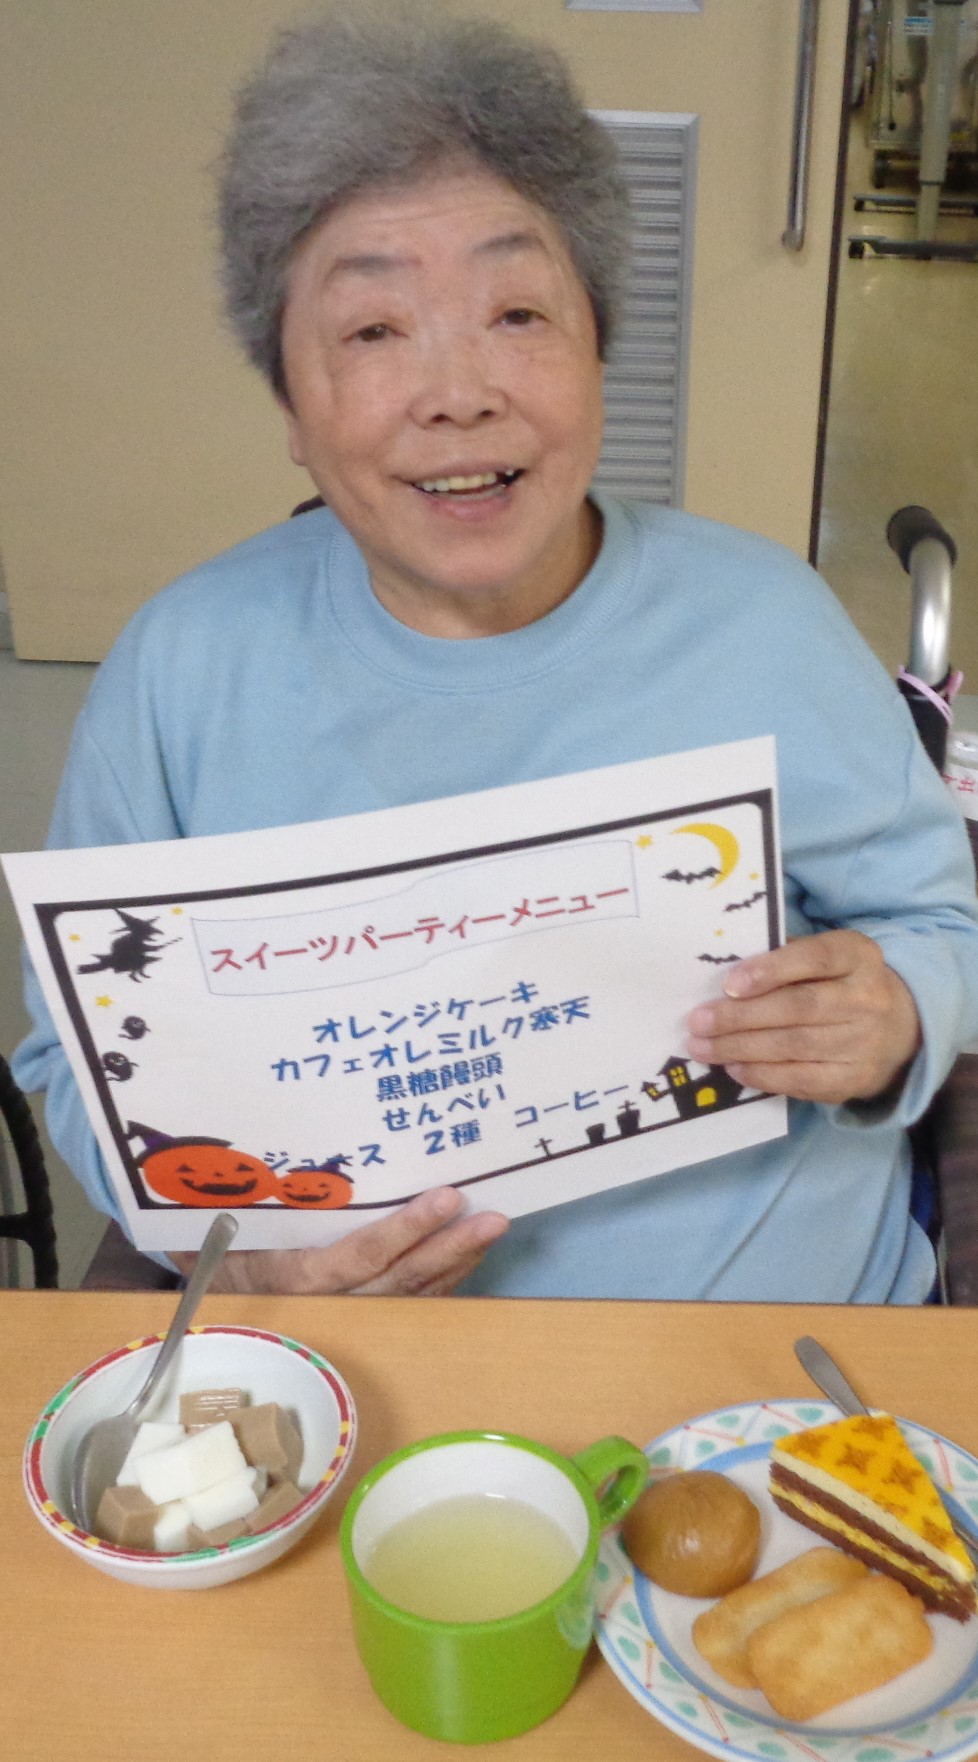 スイーツパーティーメニュー
オレンジケーキ
カフェオレミルク寒天
黒糖饅頭
せんべい
ジュース　2種　コーヒー